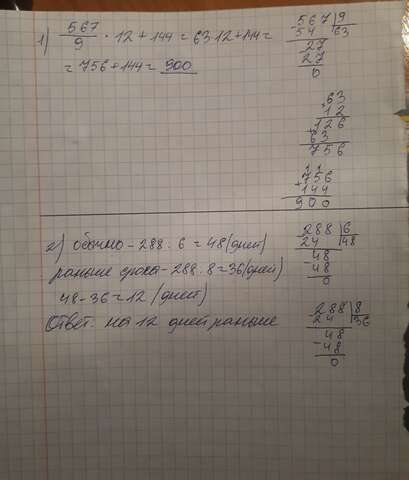 1) 567/9 · 12 + 144 = 63·12 + 144 =
= 756 + 144 = 900
567 | 9
54 | 63
27
27
0
63
12
126
+63
756
756
+144
900
2) обычно - 288 : 6 = 48 (дней)
раньше срока - 288 : 8 = 36 (дней)
48 - 36 = 12 (дней)
Ответ: на 12 дней раньше
288 | 6
24 | 48
48
48
0
288 | 8
24 | 36
48
-48
0